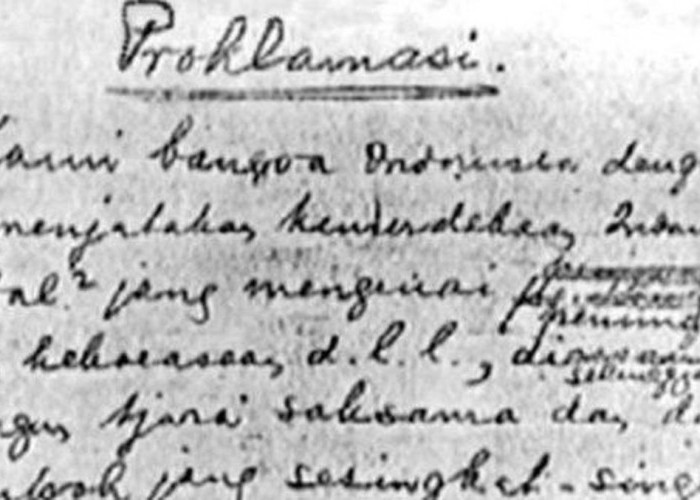 Proklamasi.
Kami bangsa Indonesia deng
menjatakan kemerdekaan Indon
Hal² jang mengenai
pemind
kekoeasaan, d.l.l.,
diselengga
ngan tjara saksama dan d
tempoh jang sesingkat-sing